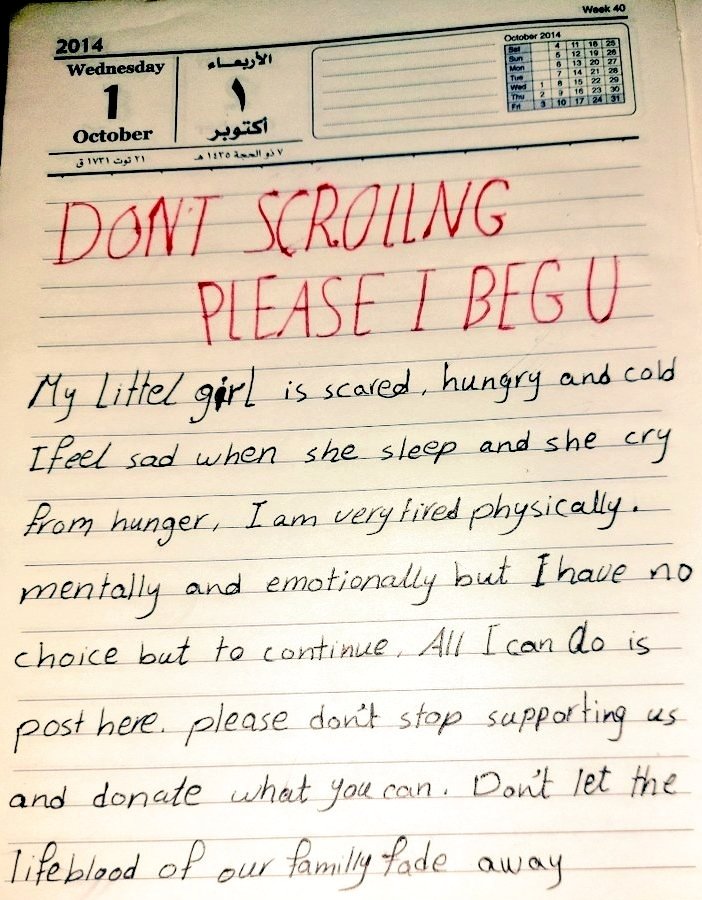 Week 40
2014
Wednesday
1
October
الأربعاء
١
أكتوبر
٢١ توت ١٧٣١ ق
٧ ذو الحجة ١٤٣٥ هـ
October 2014
Sat 4 11 18 25
Sun 5 12 19 26
Mon 6 13 20 27
Tue 7 14 21 28
Wed 1 8 15 22 29
Thu 2 9 16 23 30
Fri 3 10 17 24 31
DON'T SCROLLNG
PLEASE I BEG U
My littel girl is scared, hungry and cold
I feel sad when she sleep and she cry
from hunger, I am very tired physically.
mentally and emotionally but I have no
choice but to continue. All I can do is
post here. please don't stop supporting us
and donate what you can. Don't let the
lifeblood of our familly fade away